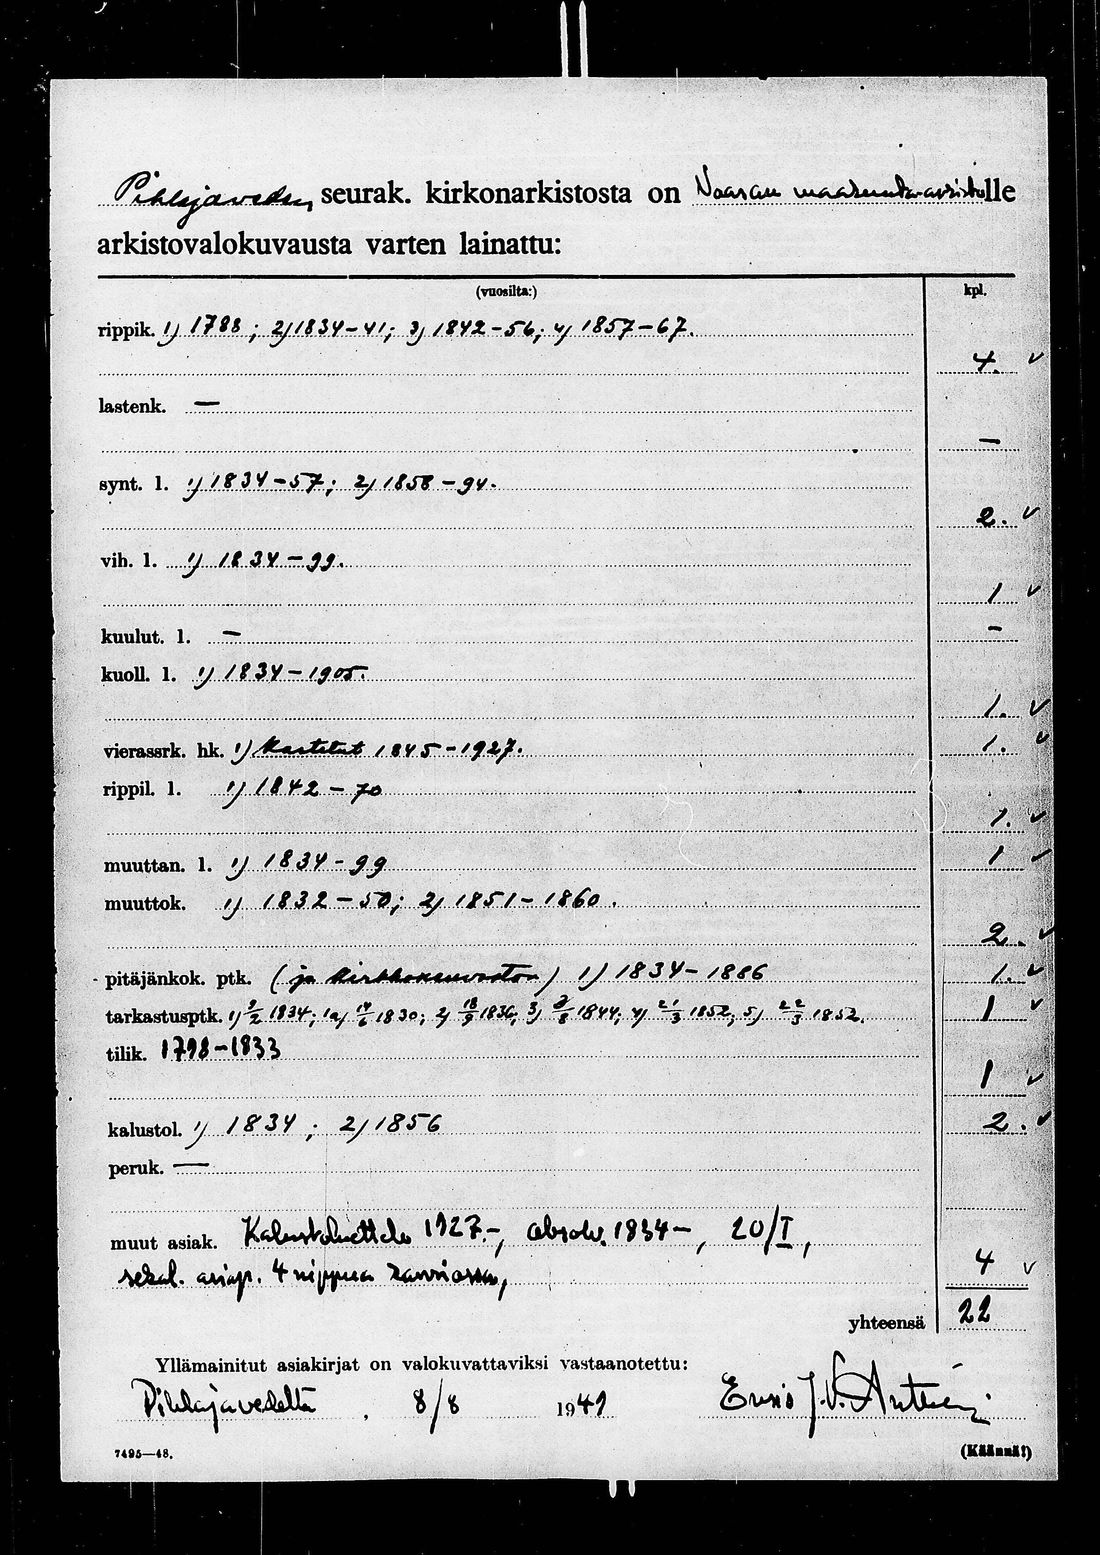 Pihlajaveden seurak. kirkonarkistosta on Vaasan maakunta-arkistolle
arkistovalokuvausta varten lainattu:
(vuosilta:) kpl.
rippik. 1) 1788; 2) 1834-41; 3) 1842-56; 4) 1857-67.
4. ✓
lastenk. —
—
synt. l. 1) 1834-57; 2) 1858-94.
2. ✓
vih. l. 1) 1834-99.
1 ✓
kuulut. l. — -
kuoll. l. 1) 1834-1905.
1. ✓
vierassrk. hk. 1) Kastetut 1845-1927. 1. ✓
rippil. l. 1) 1842-70
1. ✓
muuttan. l. 1) 1834-99 1 ✓
muuttok. 1) 1832-50; 2) 1851-1860.
2. ✓
pitäjänkok. ptk. (ja kirkkoneuvoston) 1) 1834-1886 1. ✓
tarkastusptk. 1) 2/2 1834; 1a) 17/6 1830; 2) 18/9 1836; 3) /8 1844; 4) 21/3 1852; 5) 22/3 1852. 1 ✓
tilik. 1798-1833
1 ✓
kalustol. 1) 1834; 2) 1856 2. ✓
peruk. —
muut asiak. Kalustoluettelo 1927-, absolv. 1834-, 20/I,
sekal. asiap. 4 nippua 4 ✓
yhteensä 22
Yllämainitut asiakirjat on valokuvattaviksi vastaanotettu:
Pihlajavedeltä, 8/8 1949 J.V.
7495—48. (Käännä!)